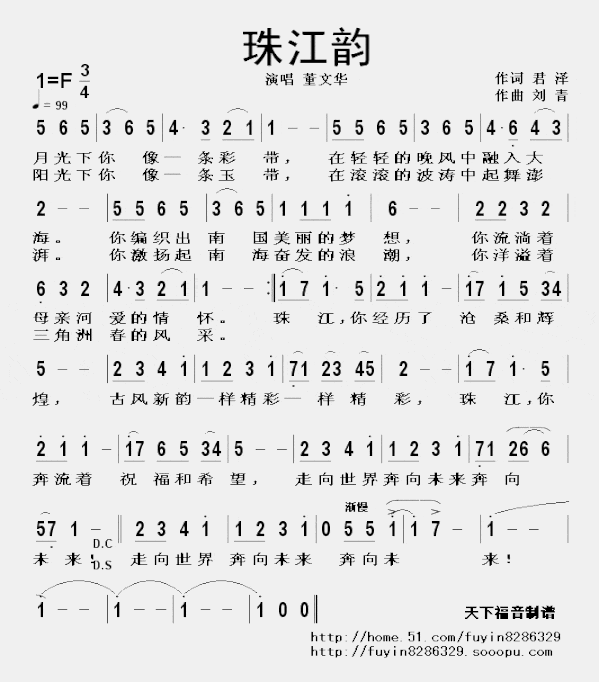 珠江韵
1=F 3/4
演唱 董文华
作词 君 泽
♩= 99
作曲 刘 青
5 6 5 | 3 6 5 | 4· 3 2 1 | 1 - - | 5 5 6 5 | 3 6 5 | 4· 6 4 3 |
月光下你 像一 条彩 带， 在轻轻的晚风中融入大
阳光下你 像一 条玉 带， 在滚滚的波涛中起舞澎
2 - - | 5 5 6 5 | 3 6 5 | 1 1 1 1 | 6 - - | 2 2 3 2 |
海。 你编织出 南 国美丽的梦 想， 你流淌着
湃。 你激扬起 南 海奋发的浪 潮， 你洋溢着
6 3 2 | 4· 3 2 1 | 1 - - :‖ 1 7 1· 5 | 2 1 1 - | 17 1 5 34 |
母亲河 爱的情 怀。 珠 江，你经历了 沧 桑和辉
三角洲 春的风 采。
5 - - | 2 3 4 1 | 1 2 3 1 | 71 23 45 | 2 - - | 1 7 1· 5 |
煌， 古风新韵一样精彩一 样 精 彩， 珠 江，你
2 1 1 - | 17 6 5 34 | 5 - - | 2 3 4 1 | 1 2 3 1 | 71 26 6 |
奔流着 祝 福和希 望， 走向世界奔向未来奔 向
渐慢
57 1 - ‖ 2 3 4 1 | 1 2 3 1 | 0 5 5 1 | 1 7 - | 1 - - |
D.C
未 来！ 走向世界 奔向未来 奔向未 来！
D.S
1 - - | 1 - - | 1 - - | 1 0 0 ‖
天下福音制谱
http://home.51.com/fuyin8286329
http://fuyin8286329.sooopu.com